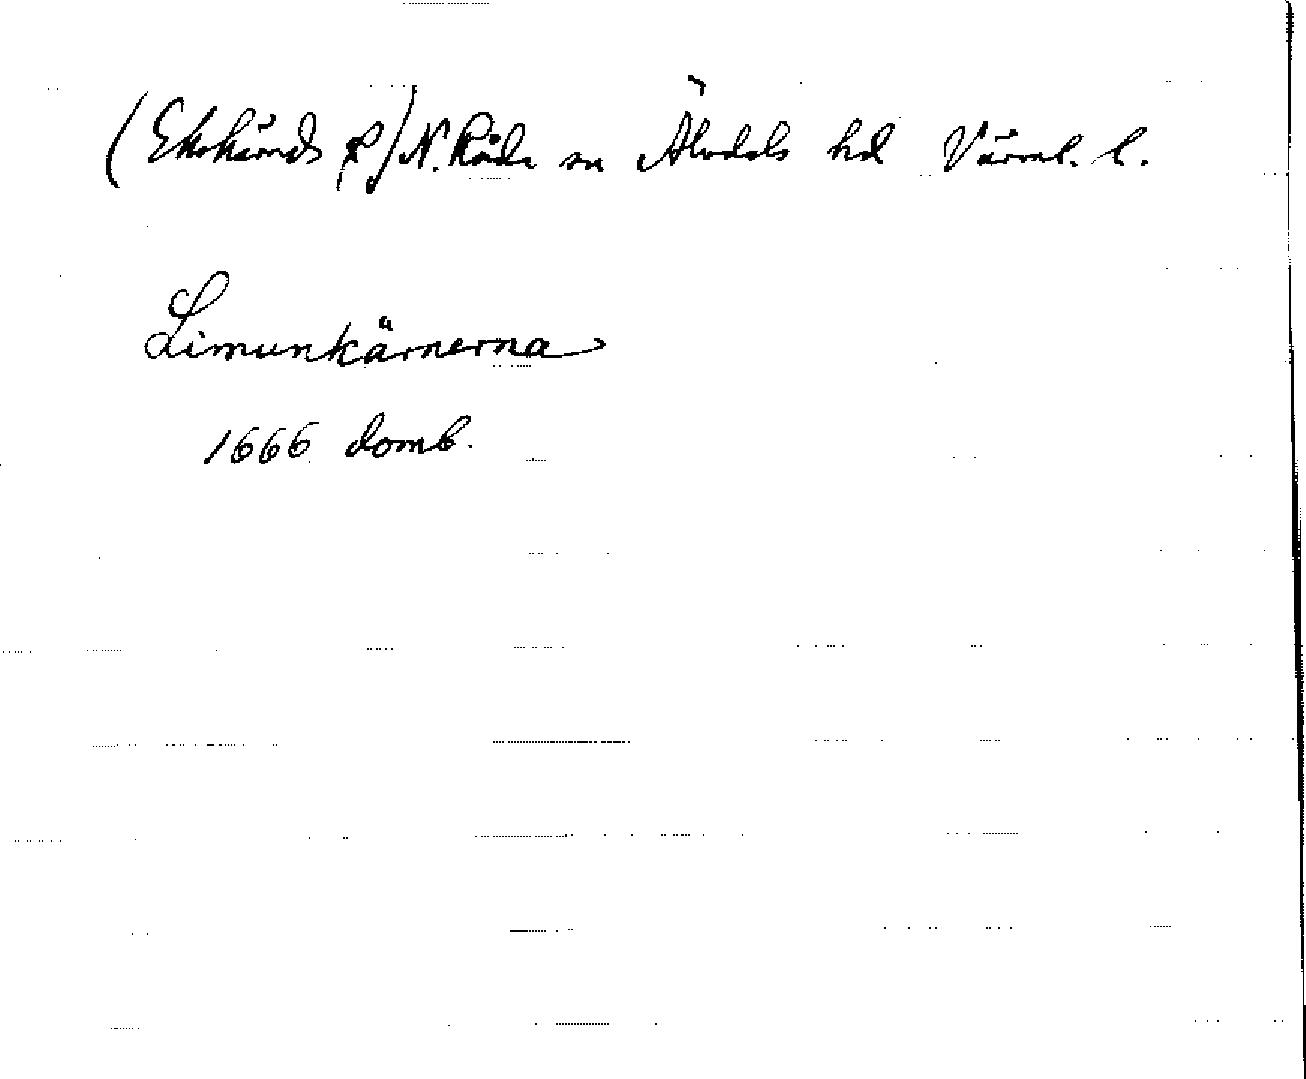 (Ekshärads R) N. Råda sn Älvdals hd Värml. l.
Limunkärnerna
1666 domb.